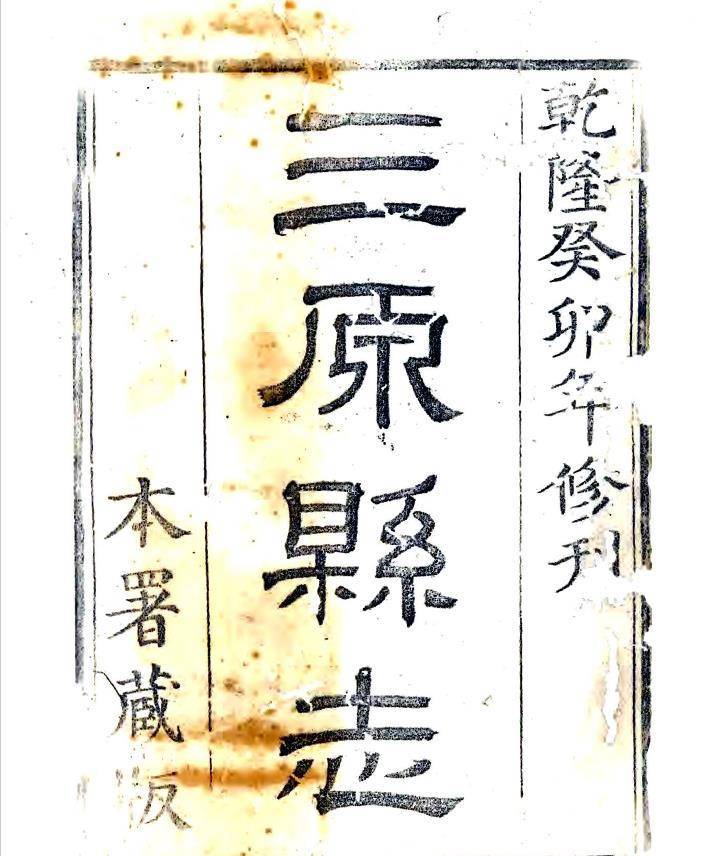 乾隆癸卯年修刊
三原縣志
本署藏版